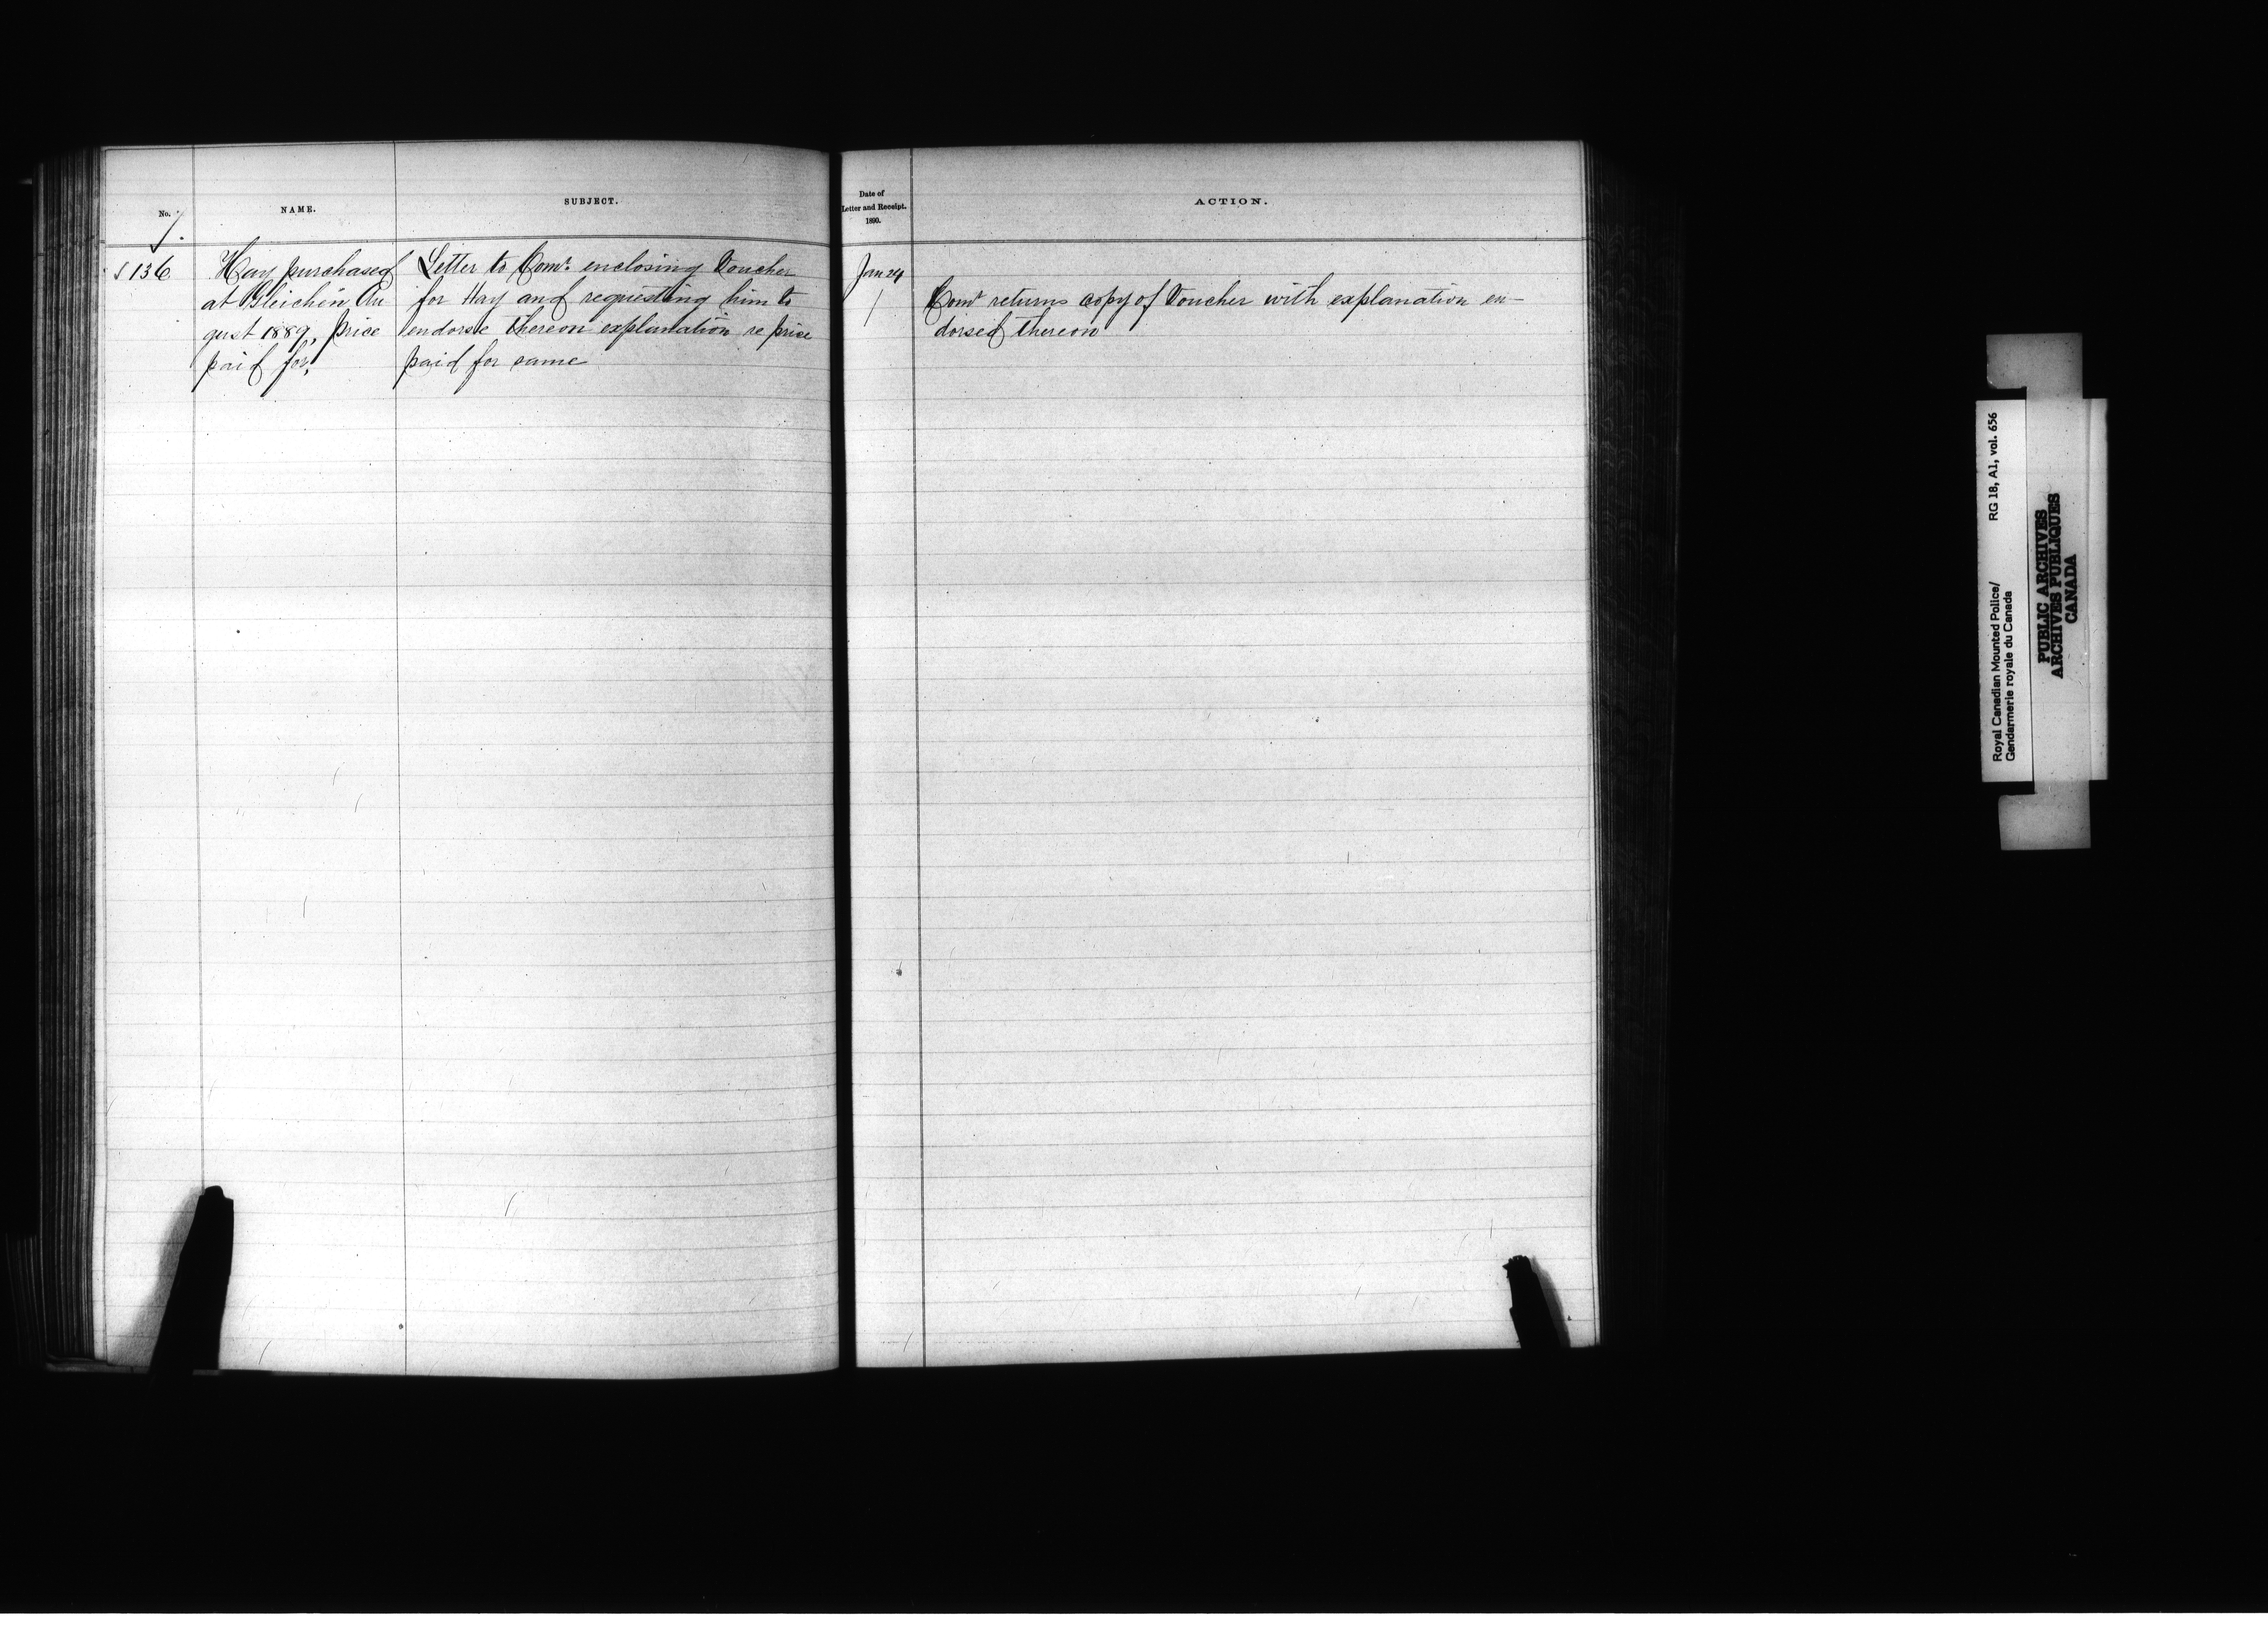 No. 7.
NAME.
SUBJECT.
136
Hay purchased
at Gleichen Au
gust 1889, price
paid for,
Letter to Comr. enclosing Voucher
for Hay and requesting him to
endorse thereon explanation re price
paid for same
Date of
Letter and Receipt.
1890.
ACTION.
Jan 24
Comr returns copy of Voucher with explanation en-
dorsed thereon
Royal Canadian Mounted Police/ RG 18, A1, vol. 656
Gendarmerie royale du Canada
PUBLIC ARCHIVES
ARCHIVES PUBLIQUES
CANADA